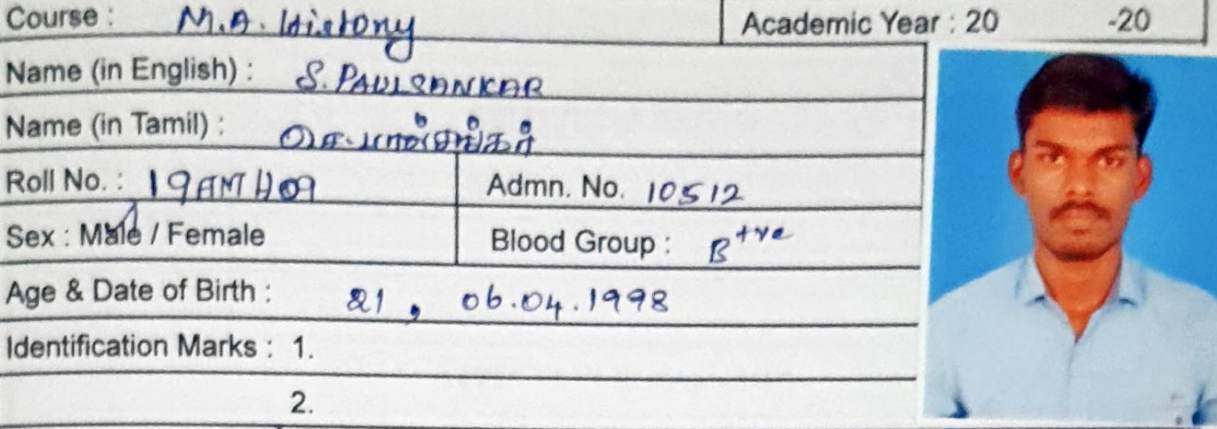 Course : M.A. History Academic Year : 20 -20
Name (in English) : S. PAULSANKAR
Name (in Tamil) : செ.பால்சங்கர்
Roll No. : 19AMTH09 Admn. No. 10512
Sex : Male / Female Blood Group : B +ve
Age & Date of Birth : 21, 06.04.1998
Identification Marks : 1.
2.